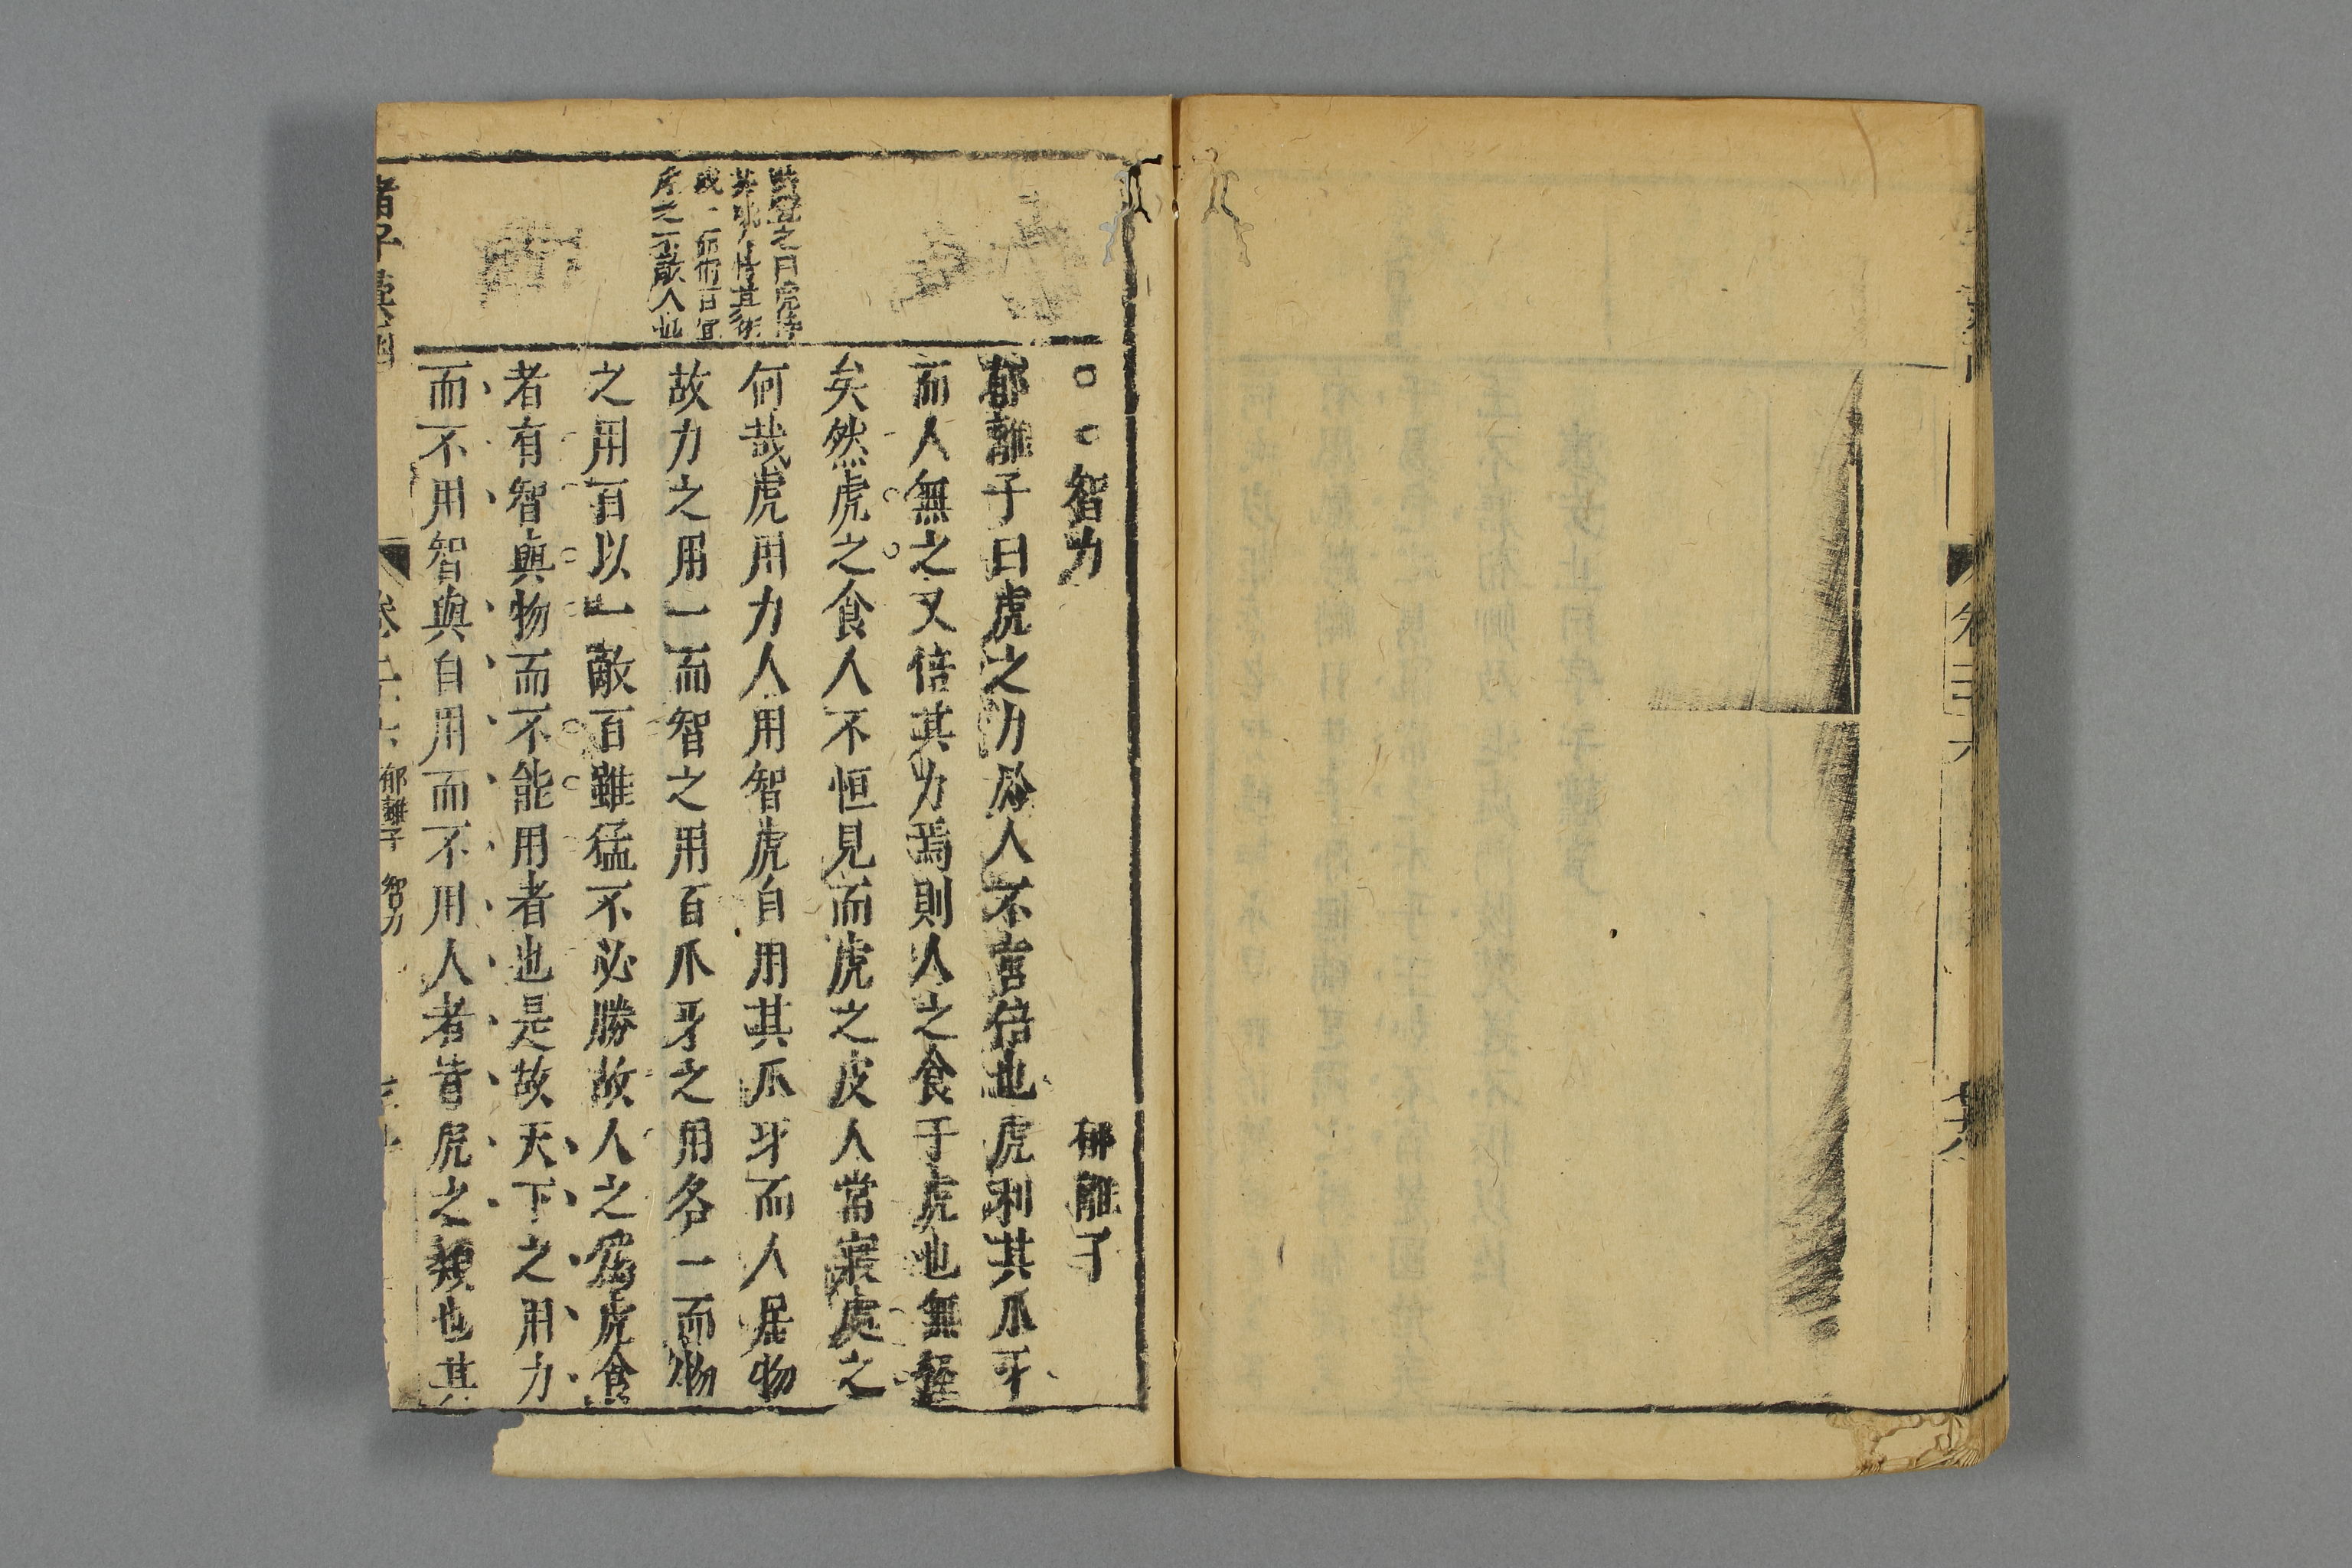 卷三十六
智力 郁離子
郁離子曰虎之力於人不啻倍也虎利其爪牙
而人無之又倍其力焉則人之食于虎也無怪
矣然虎之食人不恒見而虎之皮人常寢處之
何哉虎用力人用智虎自用其爪牙而人居物
故力之用一而智之用百爪牙之用各一而物
之用百以一敵百雖猛不必勝故人之爲虎食
者有智與物而不能用者也是故天下之用力
而不用智與自用而不用人者皆虎之類也其
之曰虎
一而物百宜
虎之不敵人也
諸子彙函
郁離子 智力